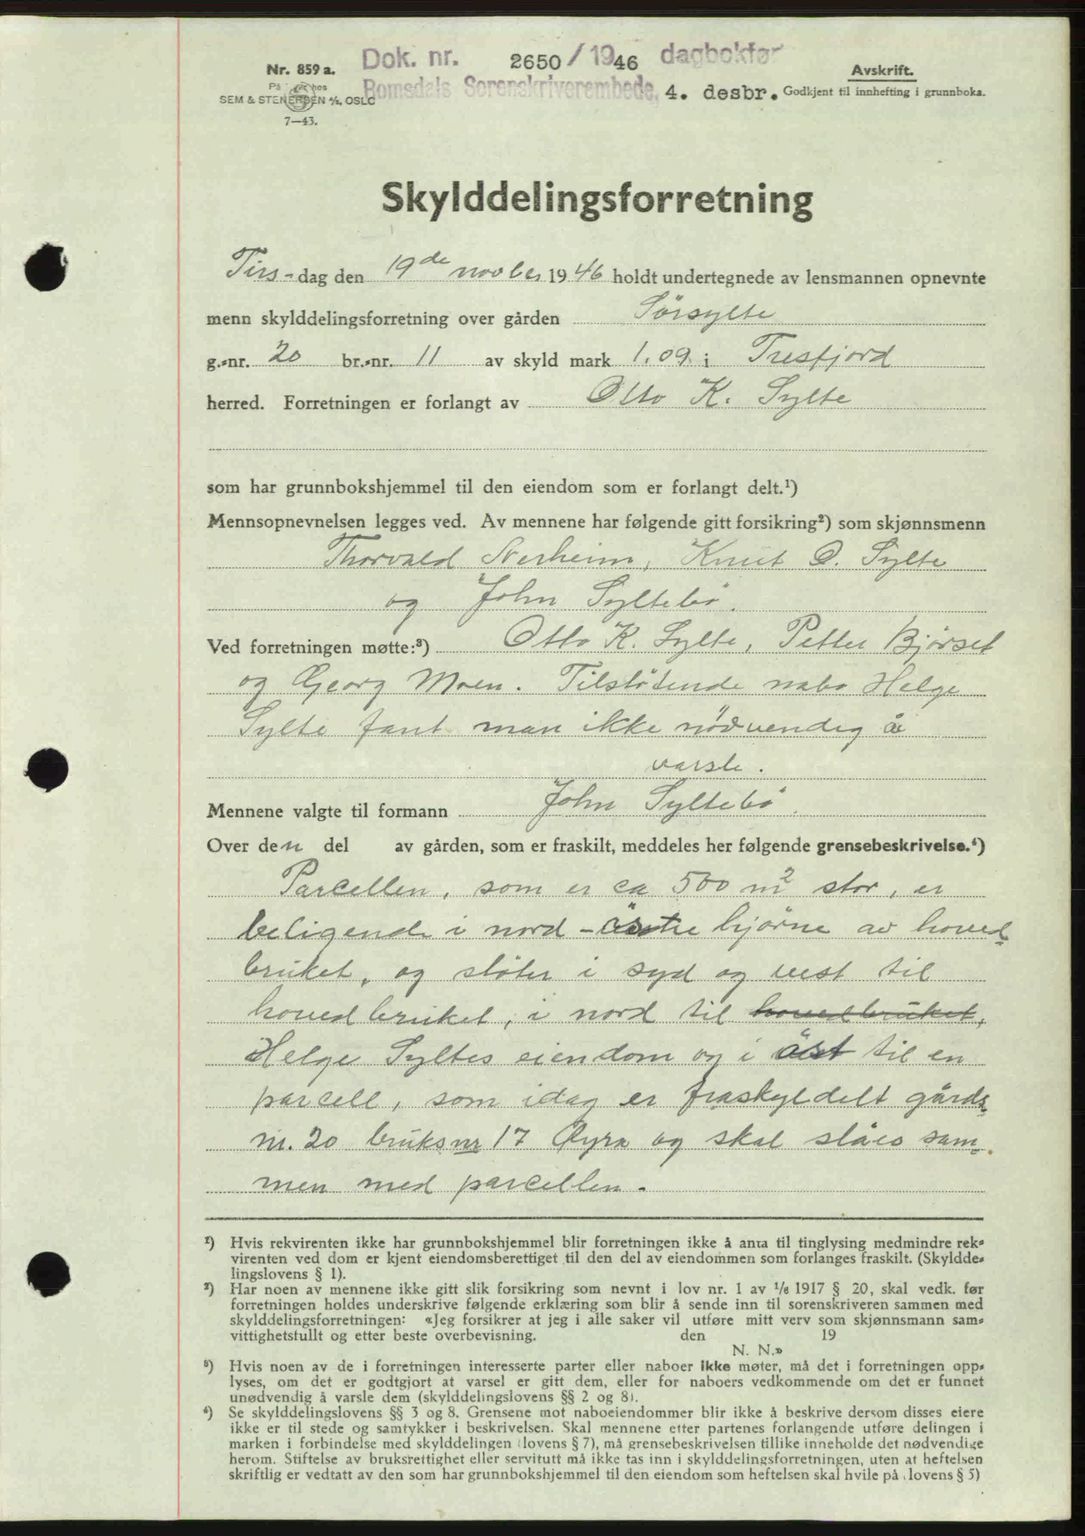 Dok. nr. 2650 / 1946 dagbokfør
Nr. 859 a.
Avskrift.
SEM & STENERSEN A/S, OSLO
Romsdals Sorenskriverembede, 4. desbr. Godkjent til innhefting i grunnboka.
7—43.
Skylddelingsforretning
Tirs-dag den 19de novbr 1946 holdt undertegnede av lensmannen opnevnte
menn skylddelingsforretning over gården Sørsylte
g.-nr. 20 br.-nr. 11 av skyld mark 1.09 i Tresfjord
herred. Forretningen er forlangt av Otto K. Sylte
som har grunnbokshjemmel til den eiendom som er forlangt delt.¹)
Mennsopnevnelsen legges ved. Av mennene har følgende gitt forsikring²) som skjønnsmenn
Thorvald Nerheim, Knut O. Sylte
og John Syltebø.
Ved forretningen møtte:³) Otto K. Sylte, Petter Bjørset
og Georg Moen. Tilstøtende nabo Helge
Sylte fant man ikke nødvendig å
varsle.
Mennene valgte til formann John Syltebø.
Over den del av gården, som er fraskilt, meddeles her følgende grensebeskrivelse.⁴)
Parcellen, som er ca 500 m² stor, er
beligende i nord-østre hjørne av hoved-
bruket, og støter i syd og vest til
hovedbruket, i nord til hovedbruket,
Helge Syltes eiendom og i øst til en
parcell, som idag er fraskyldelt gårds-
nr. 20 bruksnr 17 Øyra og skal slåes sam-
men med parcellen.
¹) Hvis rekvirenten ikke har grunnbokshjemmel blir forretningen ikke å anta til tinglysing medmindre rek-
virenten ved dom er kjent eiendomsberettiget til den del av eiendommen som forlanges fraskilt. (Skyldde-
lingslovens § 1).
²) Har noen av mennene ikke gitt slik forsikring som nevnt i lov nr. 1 av 1/6 1917 § 20, skal vedk. før
forretningen holdes underskrive følgende erklæring som blir å sende inn til sorenskriveren sammen med
skylddelingsforretningen: «Jeg forsikrer at jeg i alle saker vil utføre mitt verv som skjønnsmann sam-
vittighetsfullt og etter beste overbevisning. den 19
N. N.»
³) Hvis noen av de i forretningen interesserte parter eller naboer ikke møter, må det i forretningen opp-
lyses, om det er godtgjort at varsel er gitt dem, eller for naboers vedkommende om det er funnet
unødvendig å varsle dem (skylddelingslovens §§ 2 og 8).
⁴) Se skylddelingslovens §§ 3 og 8. Grensene mot naboeiendommer blir ikke å beskrive dersom disses eiere
ikke er til stede og samtykker i beskrivelsen. Skal mennene etter partenes forlangende utføre delingen i
marken i forbindelse med skylddelingen (lovens § 7), må grensebeskrivelsen tillike inneholde det nødvendige
herom. Stiftelse av bruksrettighet eller servitutt må ikke tas inn i skylddelingsforretningen, uten at heftelsen
skriftlig er vedtatt av den som har grunnbokshjemmel til den eiendom som heftelsen skal hvile på (lovens § 5)